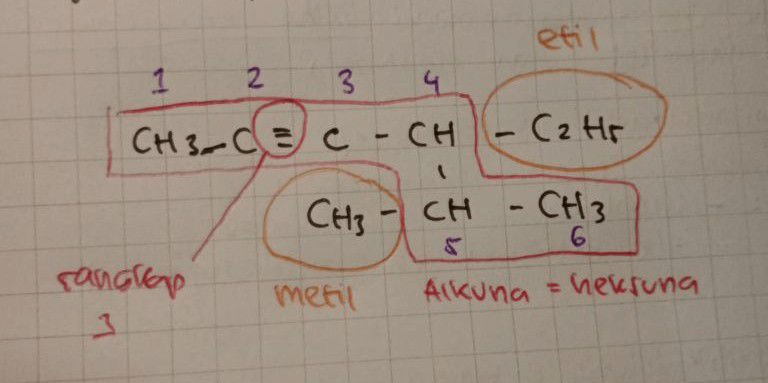 etil
1 2 3 4
CH3-C ≡ C - CH - C2H5
CH3 - CH - CH3
5 6
rangkap
3
metil
Alkuna = heksuna